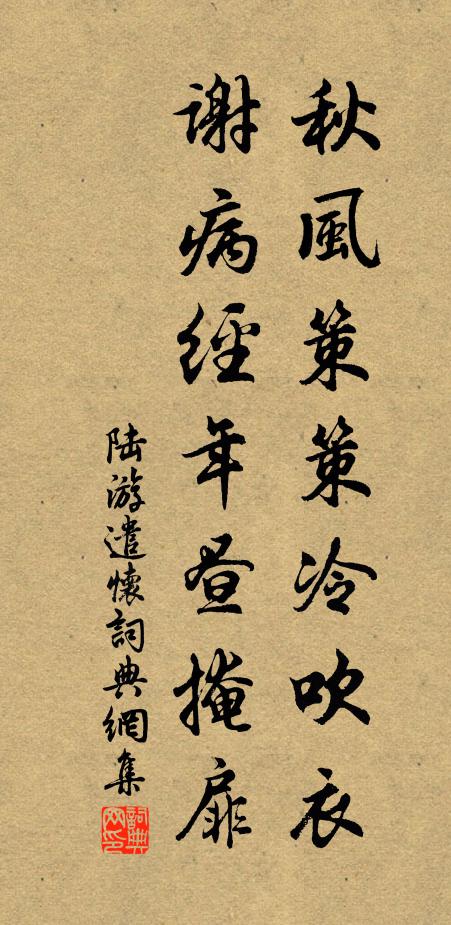 秋風策策冷吹衣
謝病經年昼掩扉
陆游遣懷詞典網集
詞典
网印